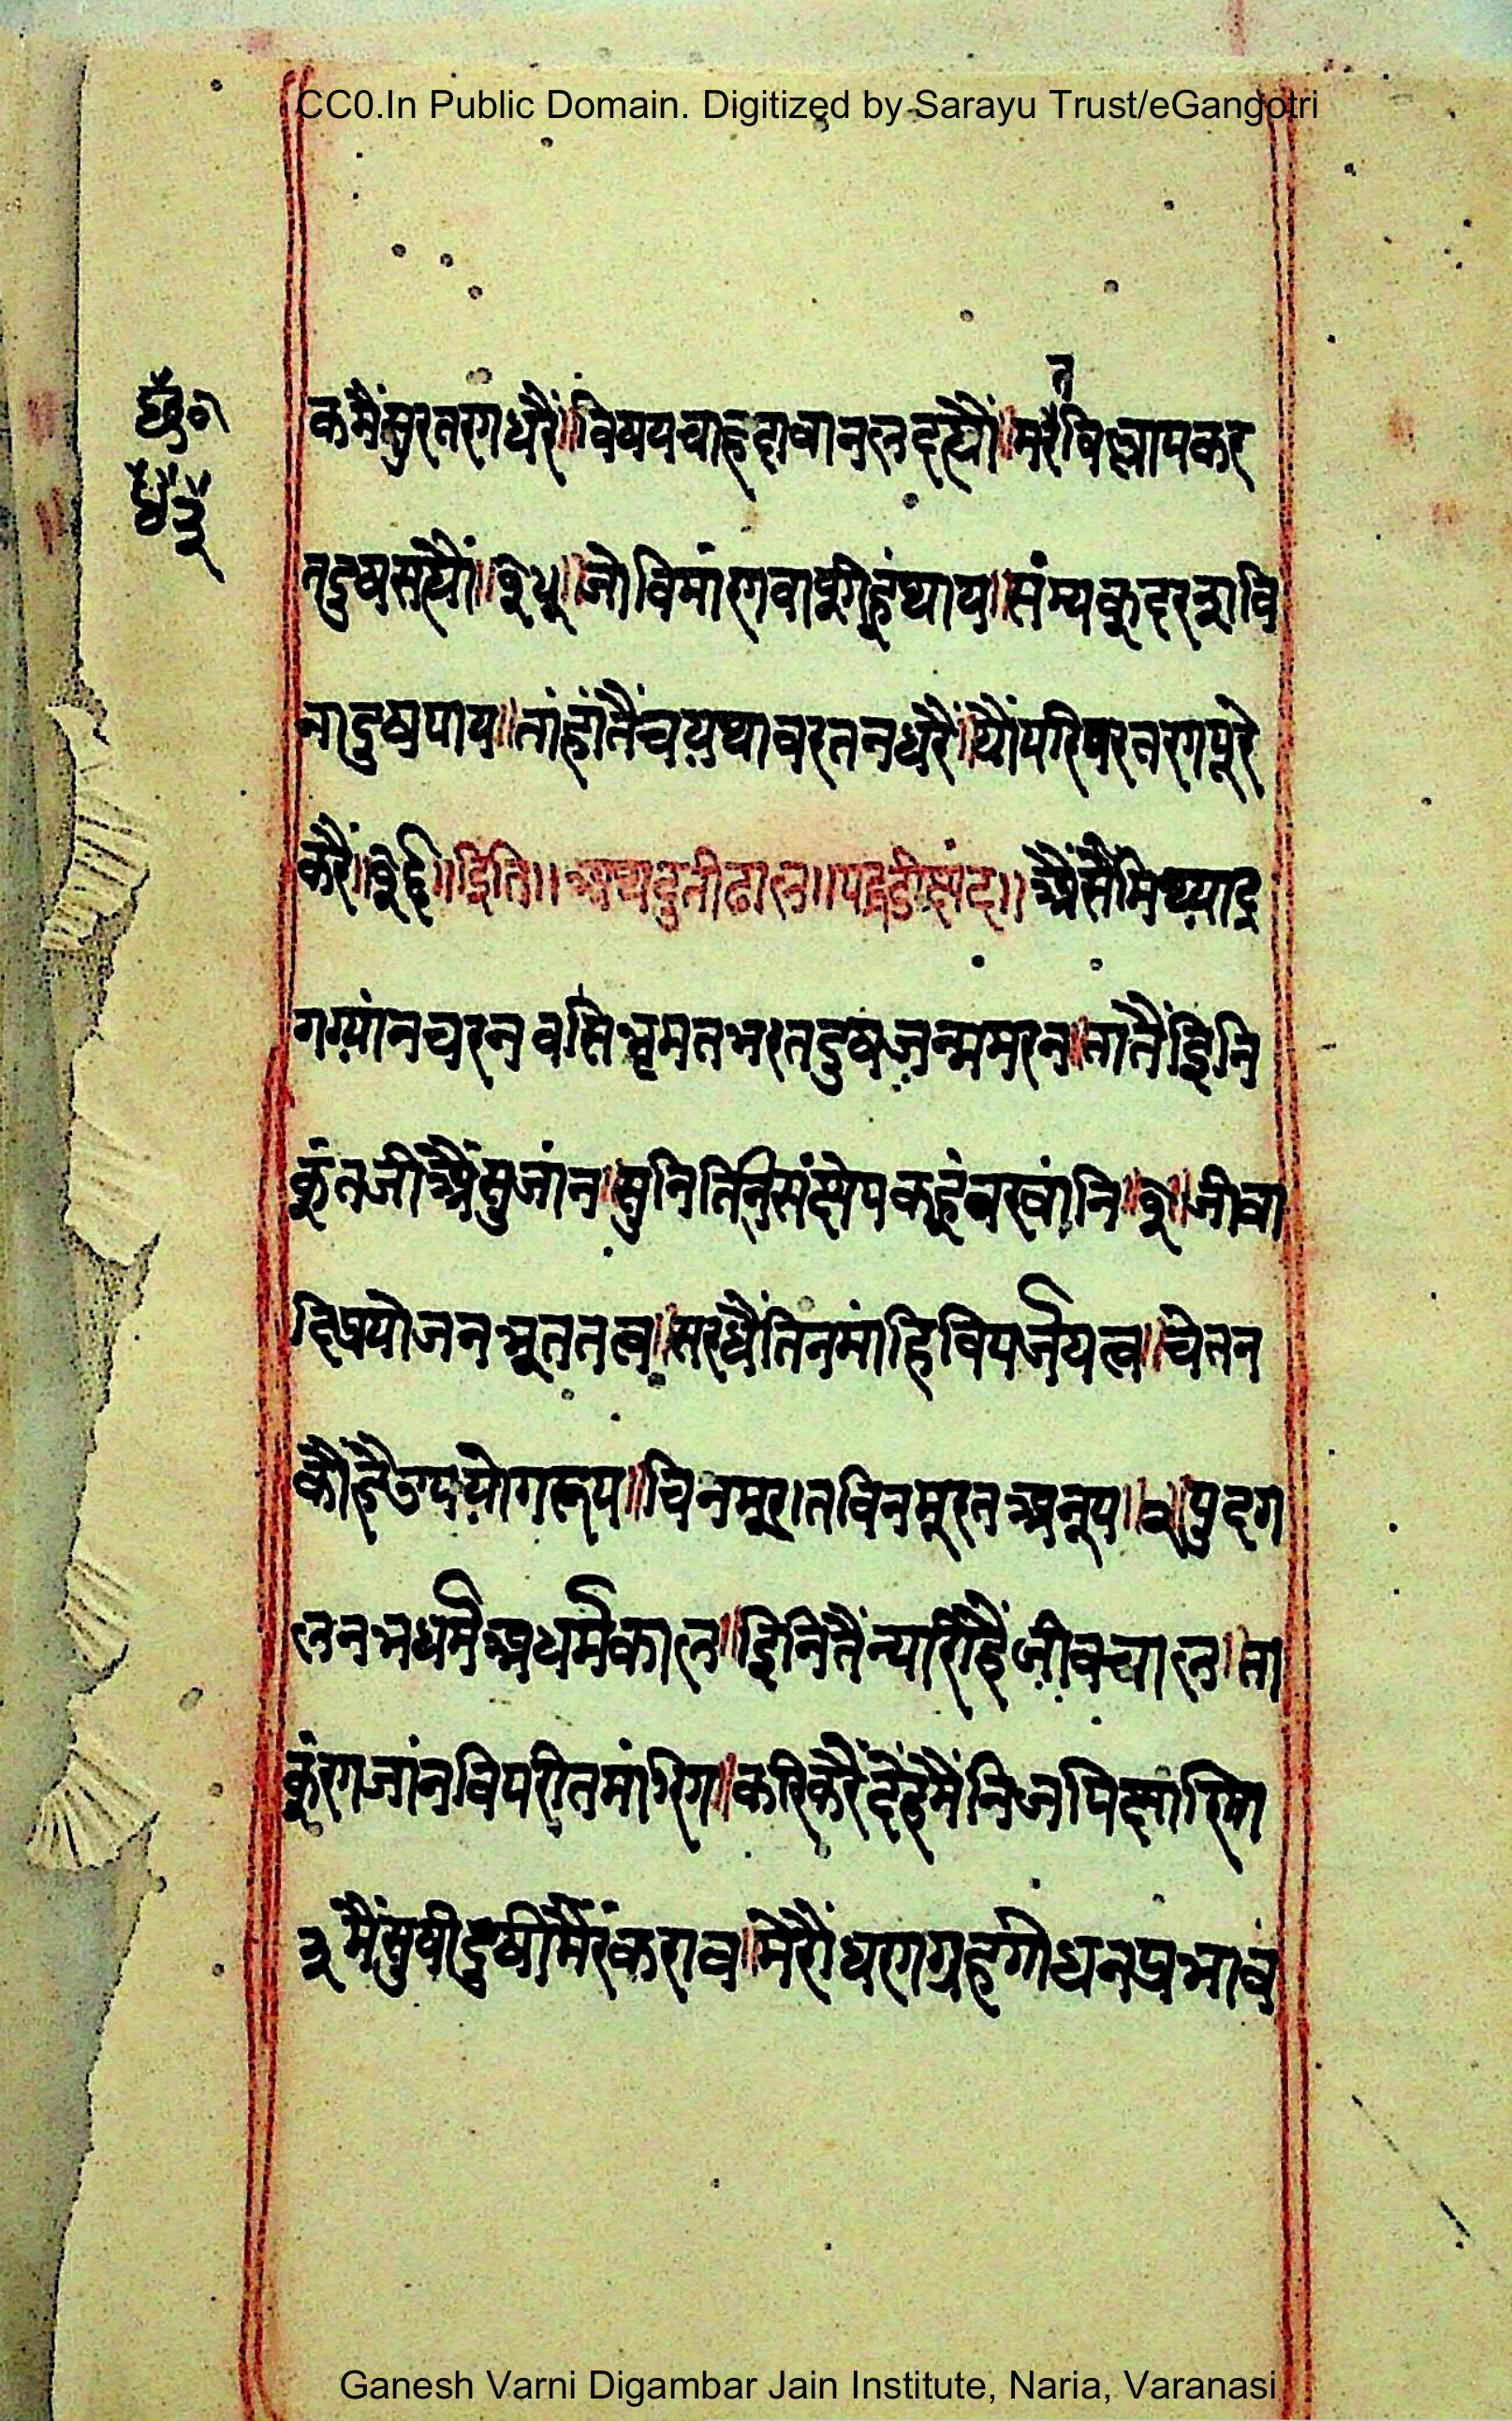 CC0.In Public Domain. Digitized by Sarayu Trust/eGangotri
त
कमैंसुरतनधरै॥विषयचाहदावानलदह्यौं॥मरैविलापकर
तदुषसह्यौं॥१५॥जोविमांनवासीहूंथाय॥संम्यकदरशनवि
नादुषपाय॥तांहांतैंचयथावरतनधरै॥यौंपरिवरतनपूरे
करै॥१६॥इति॥अथदुतीढाल॥पद्धडीछंद॥अैसैंमिथ्याद्र
गग्यांनचरनवसिभ्रमतभरतदुषजन्ममरन॥तातैंइनि
कूंतजीअैंसुजांन॥सुनितिनसंक्षेपकहूंबखांनि॥१॥जीवा
दिप्रयोजनभूततत्व॥सरधैंतिनमांहिविपर्जयत्व॥चेतन
कौहैउपयोगरूप॥चिनमूरतविनमूरतअनूप॥२॥पुदग
लनभधर्मअधर्मकाल॥इनितैंन्यारीहैजीवचाल॥ता
कूंनजांनविपरीतमांनि॥करिकरैंदेहमैंनिजपिछांनि॥
३मैंसुषीदुषीमैंरंकराव॥मेरौधनग्रहगोधनप्रभाव
Ganesh Varni Digambar Jain Institute, Naria, Varanasi